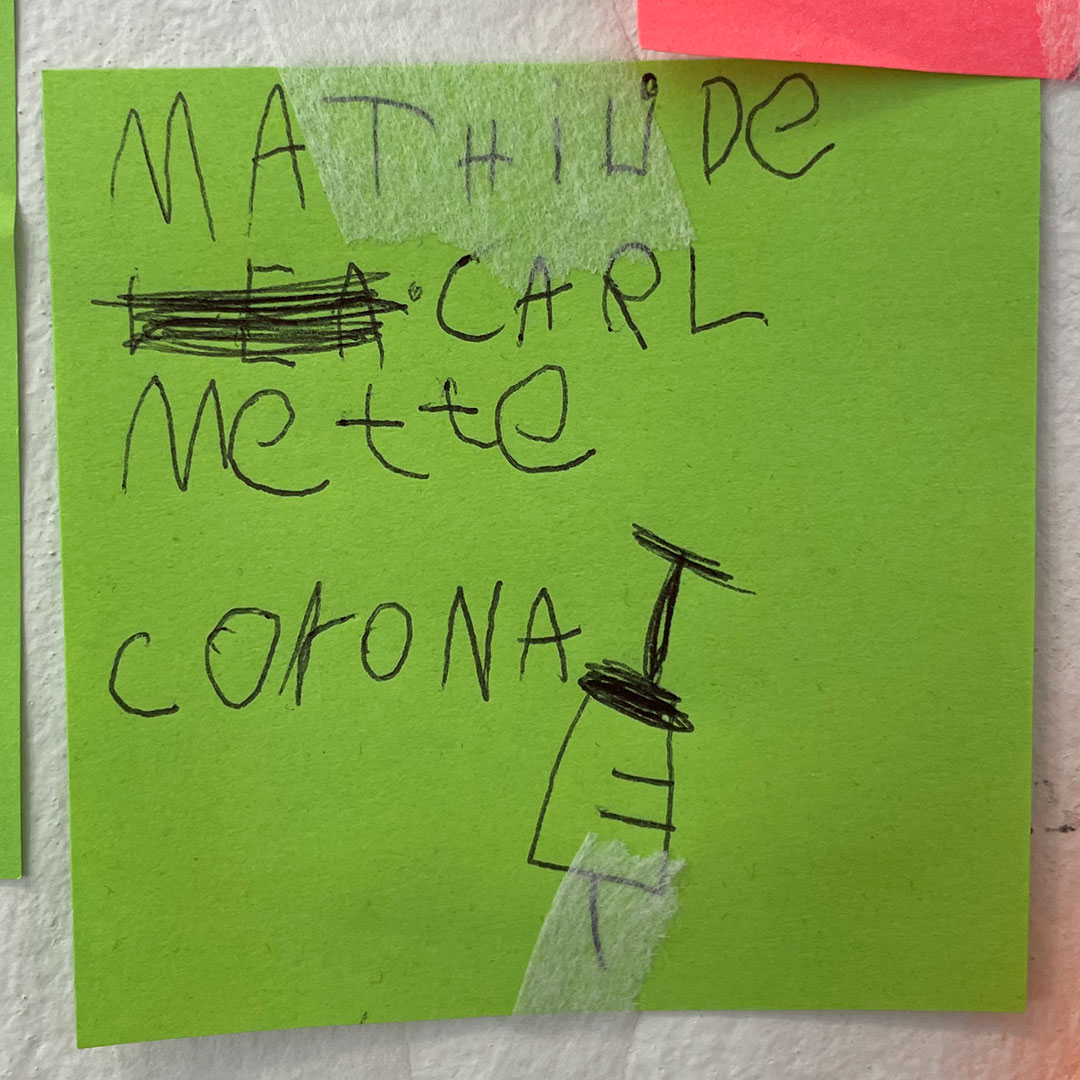 MATHILDE
CARL
Mette
CORONA